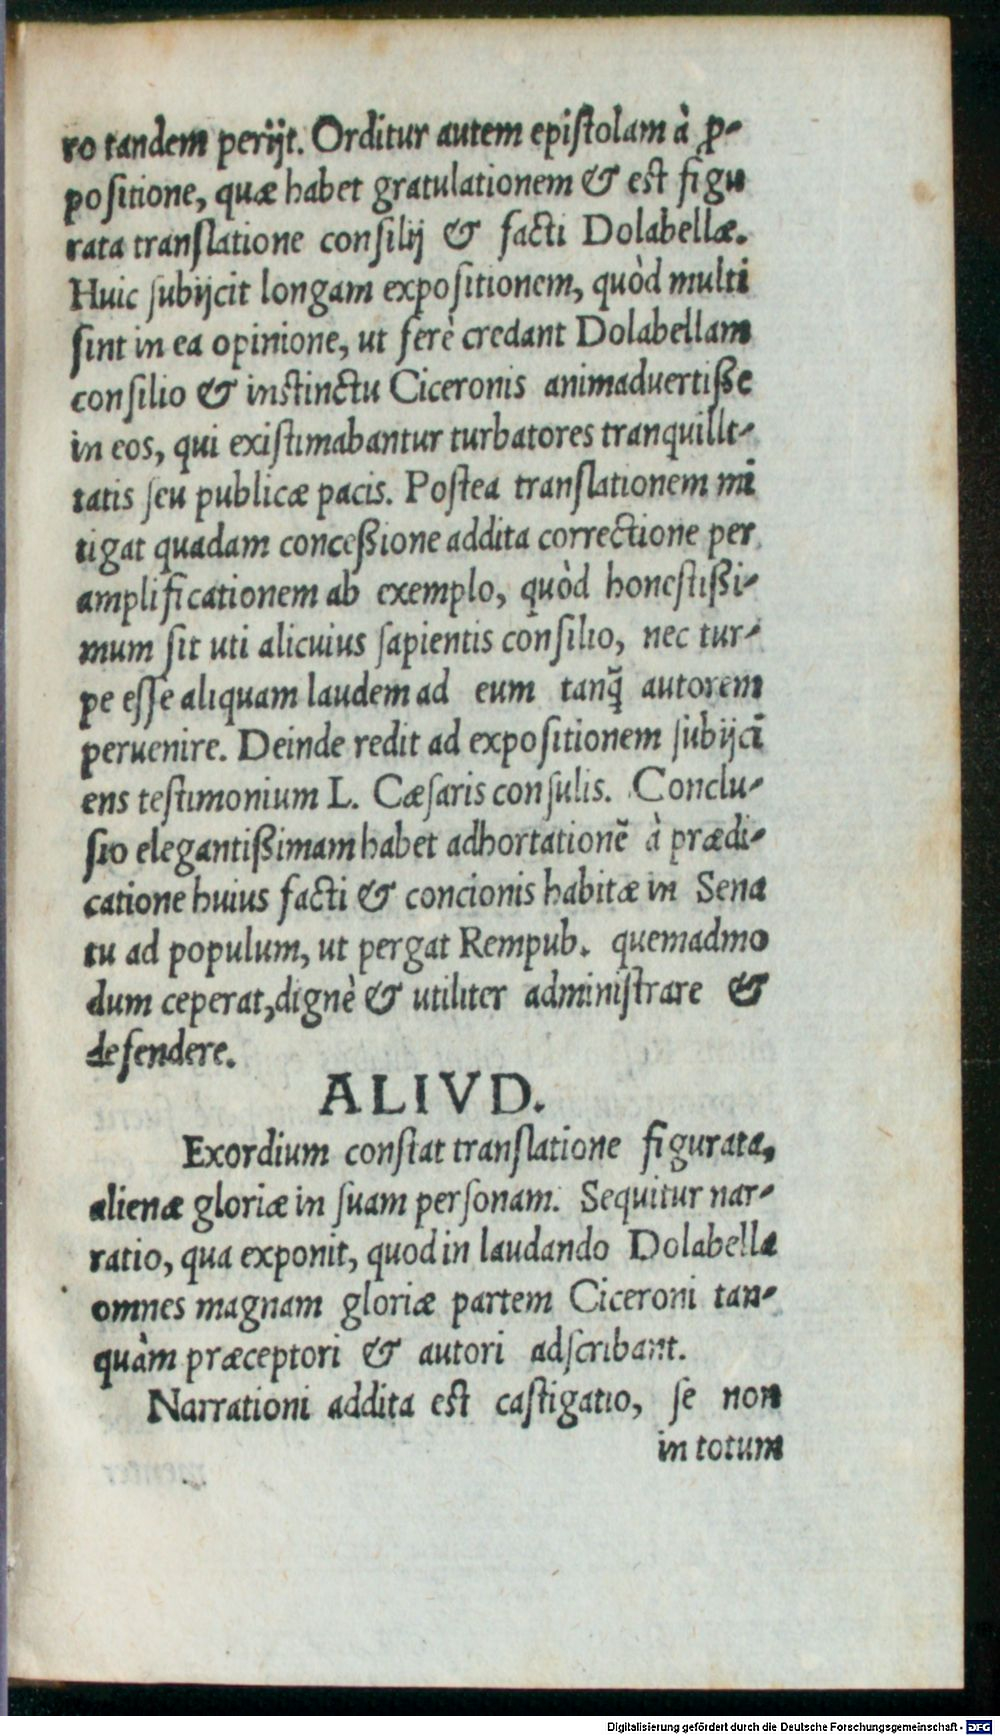 ro tandem perijt. Orditur autem epistolam à ꝓ-
positione, quæ habet gratulationem & est figu
rata translatione consilij & facti Dolabellæ.
Huic subijcit longam expositionem, quòd multi
sint in ea opinione, ut ferè credant Dolabellam
consilio & instinctu Ciceronis animaduertiße
in eos, qui existimabantur turbatores tranquilli-
tatis seu publicæ pacis. Postea translationem mi
tigat quadam conceßione addita correctione per
amplificationem ab exemplo, quòd honestißi-
mum sit uti alicuius sapientis consilio, nec tur-
pe esse aliquam laudem ad eum tanq̃ autorem
peruenire. Deinde redit ad expositionem subijci
ens testimonium L. Cæsaris consulis. Conclu-
sio elegantißimam habet adhortationẽ à prædi-
catione huius facti & concionis habitæ in Sena
tu ad populum, ut pergat Rempub. quemadmo
dum ceperat, dignè & utiliter administrare &
defendere.
ALIVD.
Exordium constat translatione figurata,
alienæ gloriæ in suam personam. Sequitur nar-
ratio, qua exponit, quod in laudando Dolabella
omnes magnam gloriæ partem Ciceroni tan-
quàm præceptori & autori adscribant.
Narrationi addita est castigatio, se non
in totum
Digitalisierung gefördert durch die Deutsche Forschungsgemeinschaft - DFG